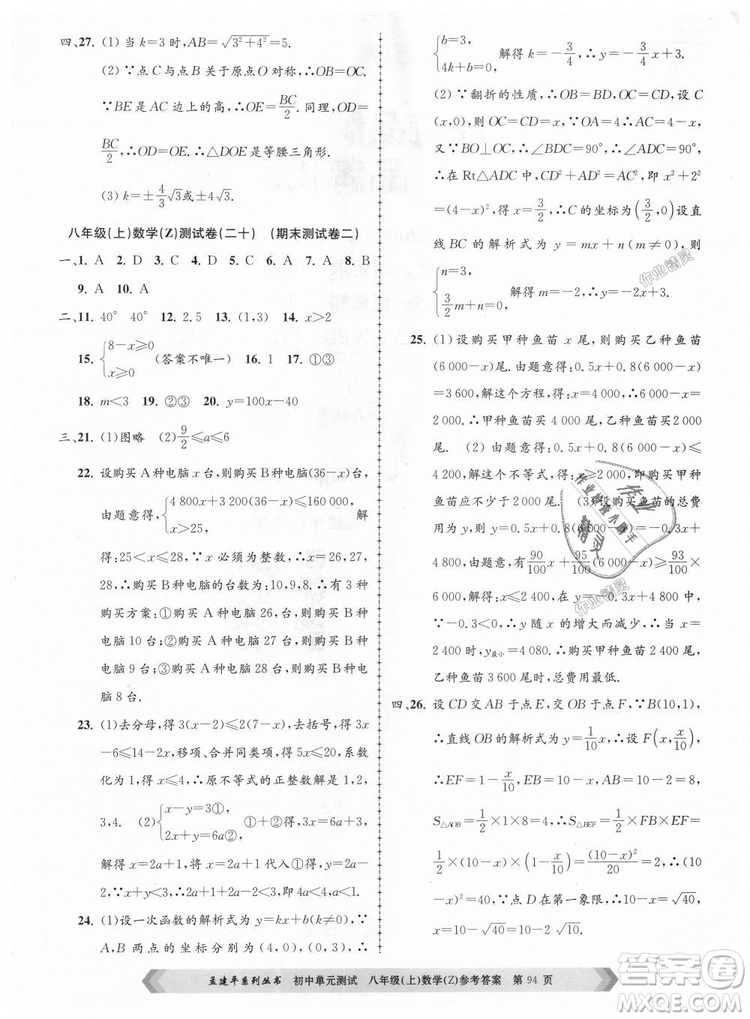 四、27. (1) 当 k=3 时,AB=√(3²+4²)=5.
(2) ∵点 C 与点 B 关于原点 O 对称,∴OB=OC.
∵BE 是 AC 边上的高,∴OE=BC/2. 同理,OD=
BC/2. ∴OE=OD. ∴△DOE 是等腰三角形.
(3) k=±4/3√3或±4√3.
八年级(上)数学(Z)测试卷(二十) (期末测试卷二)
一、1. A 2. D 3. C 4. C 5. D 6. A 7. D 8. B
9. A 10. A
二、11. 40° 40° 12. 2.5 13. (1,3) 14. x>2
15. {8-x≥0
x≥0 (答案不唯一) 16. 1 17. ①③
18. m<3 19. ②③ 20. y=100x-40
三、21. (1)图略 (2)9/2≤a≤6
22. 设购买 A 种电脑 x 台,则购买 B 种电脑(36-x)台,
由题意得:{4 800x+3 200(36-x)≤160 000,
x>25, 解
得:25<x≤28. ∵x 必须为整数,∴x=26,27,
28. ∴购买 B 种电脑的台数为:10,9,8. ∴可以有 3 种
购买方案:①购买 A 种电脑 26 台,B 种电
脑 10 台;②购买 A 种电脑 27 台,B 种电
脑 9 台;③购买 A 种电脑 28 台,B 种电脑
8 台.
23. (1)去分母,得 3(x-2)≤2(7-x),去括号,得 3x
-6≤14-2x,移项、合并同类项,得 5x≤20,系数
化为 1,得 x≤4. ∴原不等式的正整数解为:1,2,
3,4. (2){x-y=3①,
2x+y=6a②, ①+②得:3x=6a+3,
解得 x=2a+1,将 x=2a+1 代入①得:y=2a
-2,∵x+y<3,∴2a+1+2a-2<3,即 4a<4,a<1.
24. (1)设一次函数的解析式为 y=kx+b,∵
A,B 两点的坐标分别为(4,0),(0,3),∴
{b=3,
4k+b=0, 解得 k=-3/4,∴y=-3/4x+3.
(2) ∵翻折的性质,∴OB=OD=BD/2,设 OC=x,
∵BO⊥OC,∴BC=CD. ∵OA=4,∴AC=CD=4-
x,∵在 Rt△ADC 中,CD²+AD²=AC²,∴
=(4-x)²,解得 x=3/2,∴C 的坐标为(3/2,0),设直
线 BC 的解析式为 y=mx+n,∵B(0,3),∴
{n=3,
3/2m+n=0, 解得 m=-2,∴y=-2x+3.
25. (1) 设购买甲种鱼苗 x 尾,则购买乙种鱼苗
(6 000-x)尾. 由题意得:0.5x+0.8(6 000-x)
=3 600,解这个方程,得:x=4 000,∴6 000-x=
2 000. ∴甲种鱼苗买 4 000 尾,乙种鱼苗买 2 000
尾. (2) 由题意得:0.5x+0.8(6 000-x)≤
4 200,解这个不等式,得:x≥2 000,即购买甲种
鱼苗应不少于 2 000 尾. (3)设购买鱼苗的总费
用为 y,则 y=0.5x+0.8(6 000-x)=-0.3x+
4 800. 由题意,得 90/100x+95/100(6 000-x)≥93/100×
6 000,解得:x≤2 400,在 y=-0.3x+4 800 中,
∵-0.3<0,∴y 随 x 的增大而减少,∴当 x=
2 400 时,y最小=4 080. 即购买甲种鱼苗 2 400 尾,
乙种鱼苗 3 600 尾时,总费用最低.
四、26. 设 CD 交 AB 于点 E,交 OB 于点 F,∵B(10,1),
∴直线 OB 的解析式为:y=1/10x,∴F(x,x/10),
∴EF=1-x/10,BE=10-x. 由题意得:
S△AOB=1/2×10×1=5,S△BEF=1/2×EF×BE=
1/2×(1-x/10)×(10-x)=(10-x)²/20=5/2,∴(10
-x)²=50... ∵点 D 在第一象限,∴10-x=√40,
x=10-√40=10-2√10.
孟建平系列丛书 初中单元测试 八年级(上)数学(Z)参考答案 第 94 页
作业精灵
作业检查小帮手
作业精灵
作业精灵
答案圈
MXQE.COM